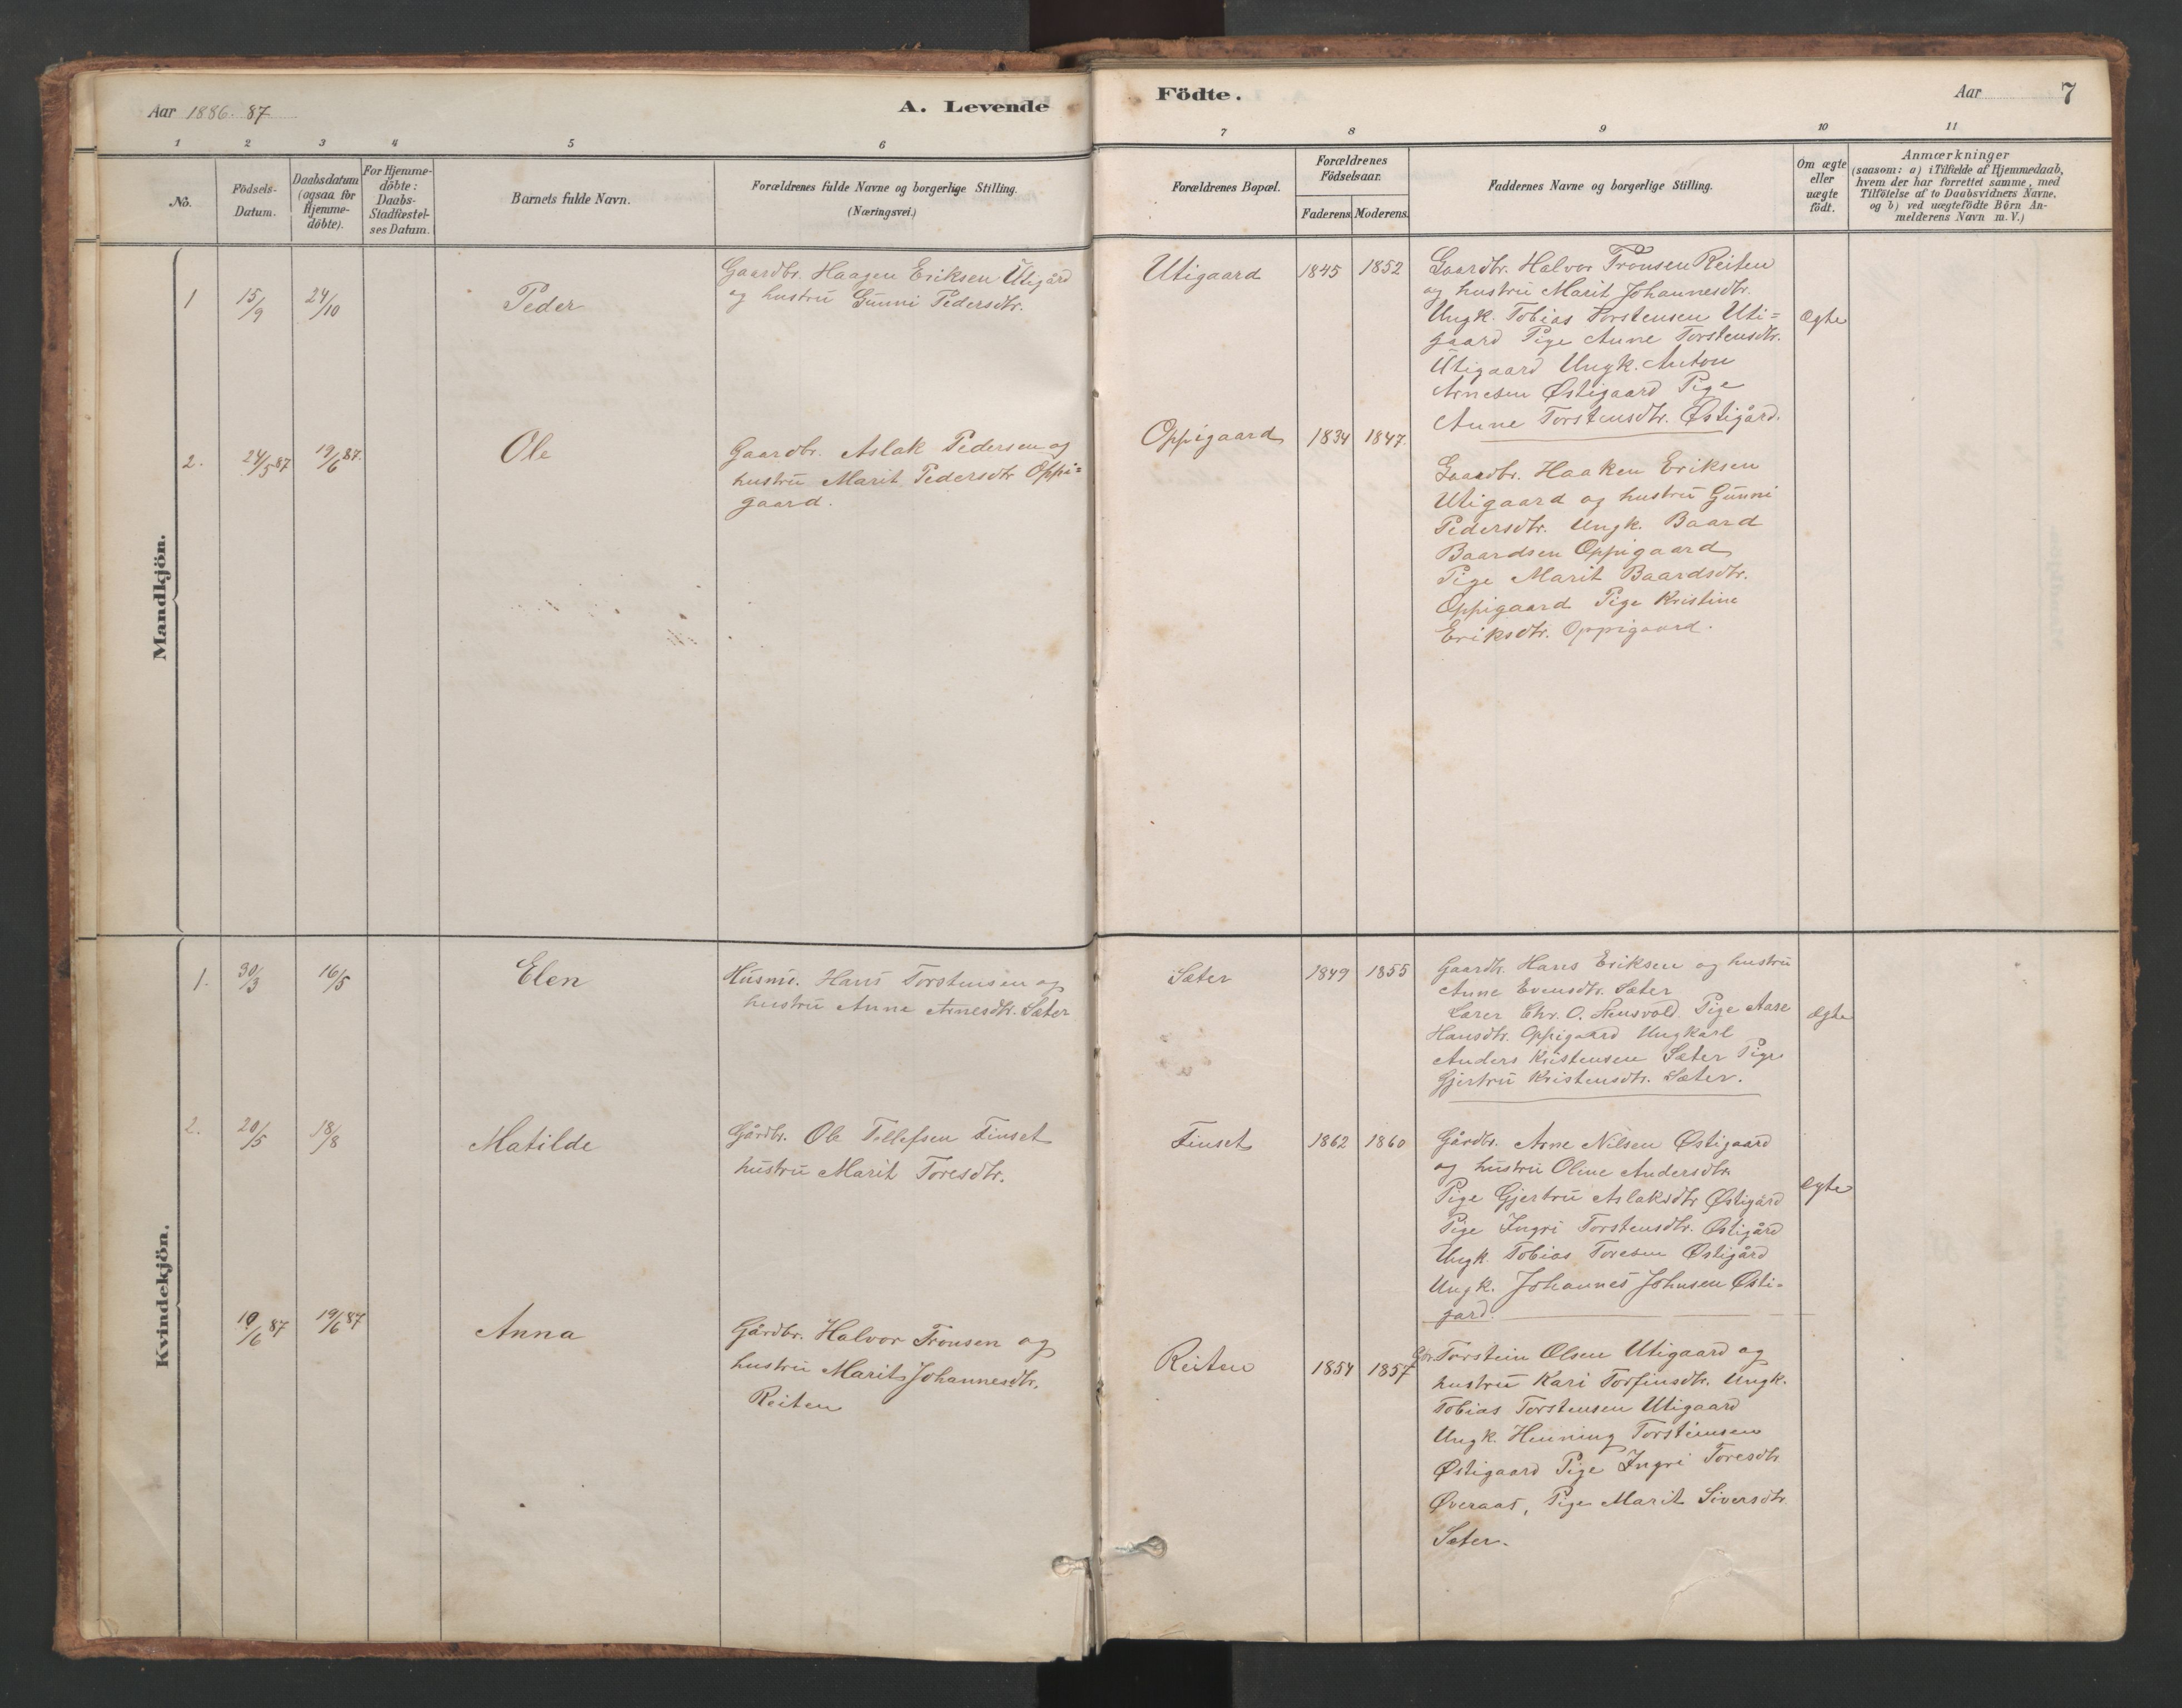 Aar 1886. 87
A. Levende
Födte.
Aar
7
1 2 3 4 5 6 7 8 9 10 11
No.
Födsels-
Datum.
Daabsdatum
(ogsaa for
Hjemme-
döbte).
For Hjemme-
döbte:
Daabs-
Stadfæstel-
ses Datum.
Barnets fulde Navn.
Forældrenes fulde Navne og borgerlige Stilling.
(Næringsvei.)
Forældrenes Bopæl.
Forældrenes
Födselsaar.
Faderens. Moderens.
Faddernes Navne og borgerlige Stilling.
Om ægte
eller
uægte
födt.
Anmærkninger
(saasom: a) i Tilfælde af Hjemmedaab,
hvem der har forrettet samme, med
Tilföielse af to Daabsvidners Navne,
og b) ved uægtefödte Börn An-
melderens Navn m. V.)
Mandkjön.
1
15/9
24/10
Peder
Gaardbr. Haagen Eriksen Utigård
og hustru Gunni Pedersdtr.
Utigaard
1845
1852
Gaardbr. Halvor Tronsen Reiten
og hustru Marit Johannesdtr.
Ungk. Tobias Torstensen Uti=
gaard Pige Anne Torstensdtr.
Utigaard Ungk. Anton
Arnesen Østigaard Pige
Anne Torstensdtr. Østigård.
Ægte
2.
24/5 87
19/6 87.
Ole
Gaardbr. Aslak Pedersen og
hustru Marit Pedersdtr Oppi=
gaard.
Oppigaard
1834
1847.
Gaardbr. Haaken Eriksen
Utigaard og hustru Gunni
Pedersdtr. Ungk. Baard
Baardsen Oppigaard
Pige Marit Baardsdtr.
Oppigaard Pige Kristine
Eriksdtr. Oppigaard.
Kvindekjön.
1.
30/3
16/5
Elen
Husm. Hans Torstensen og
hustru Anne Arnesdtr. Sæter
Sæter
1849
1855
Gaardbr. Hans Eriksen og hustru
Anne Evensdtr. Sæter
Lærer Chr. O. Pige Aase
Hansdtr. Oppigaard Ungkarl
Anders Kristensen Sæter Pige
Gjertru Kristensdtr. Sæter.
Ægte
2.
20/5
18/8
Matilde
Gårdbr. Ole Tollefsen Finset
hustru Marit Toresdtr.
Finset
1862
1860
Gårdbr. Arne Nilsen Østigaard
og hustru Oline Andersdtr
Pige Gjertru Aslaksdtr Østigård
Pige Ingri Torstensdtr. Østigård
Ungk. Tobias Toresen Østigård
Ungk. Johannes Johnsen Østi-
gard.
Ægte
10/6 87
19/6 87
Anna
Gårdbr. Halvor Tronsen og
hustru Marit Johannesdtr.
Reiten
Reiten
1854
1857
Gbr. Torstein Olsen Utigaard og
hustru Kari Torfinsdtr. Ungk.
Tobias Torstensen Utigaard
Ungk. Henning Torsteinsen
Østigaard Pige Ingri Toresdtr
Øveraas, Pige Marit Siversdtr
Sæter.